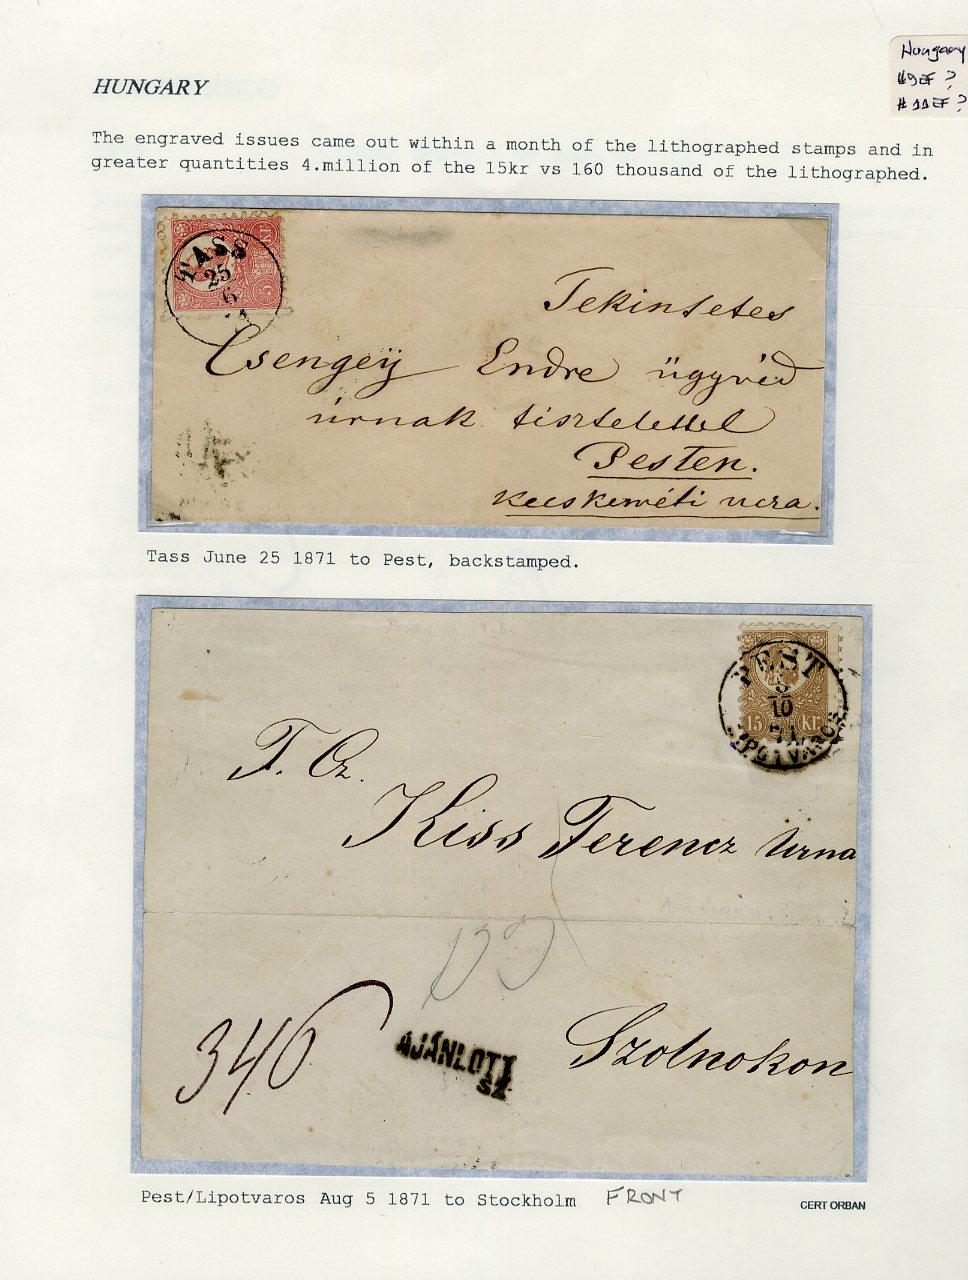 Hungary
#9EF ?
#11EF ?
HUNGARY
The engraved issues came out within a month of the lithographed stamps and in
greater quantities 4.million of the 15kr vs 160 thousand of the lithographed.
TASS
25
6
Tekintetes
Csengeÿ Endre ügyvéd
úrnak tisztelettel
Pesten.
Kecskeméti ucza.
Tass June 25 1871 to Pest, backstamped.
PEST
10
71
LIPOTVAROS
15 Kr
T. Cz.
Kiss Ferencz Urna
346
AJÁNLOTT
SZ
Szolnokon
Pest/Lipotvaros Aug 5 1871 to Stockholm FRONT
CERT ORBAN